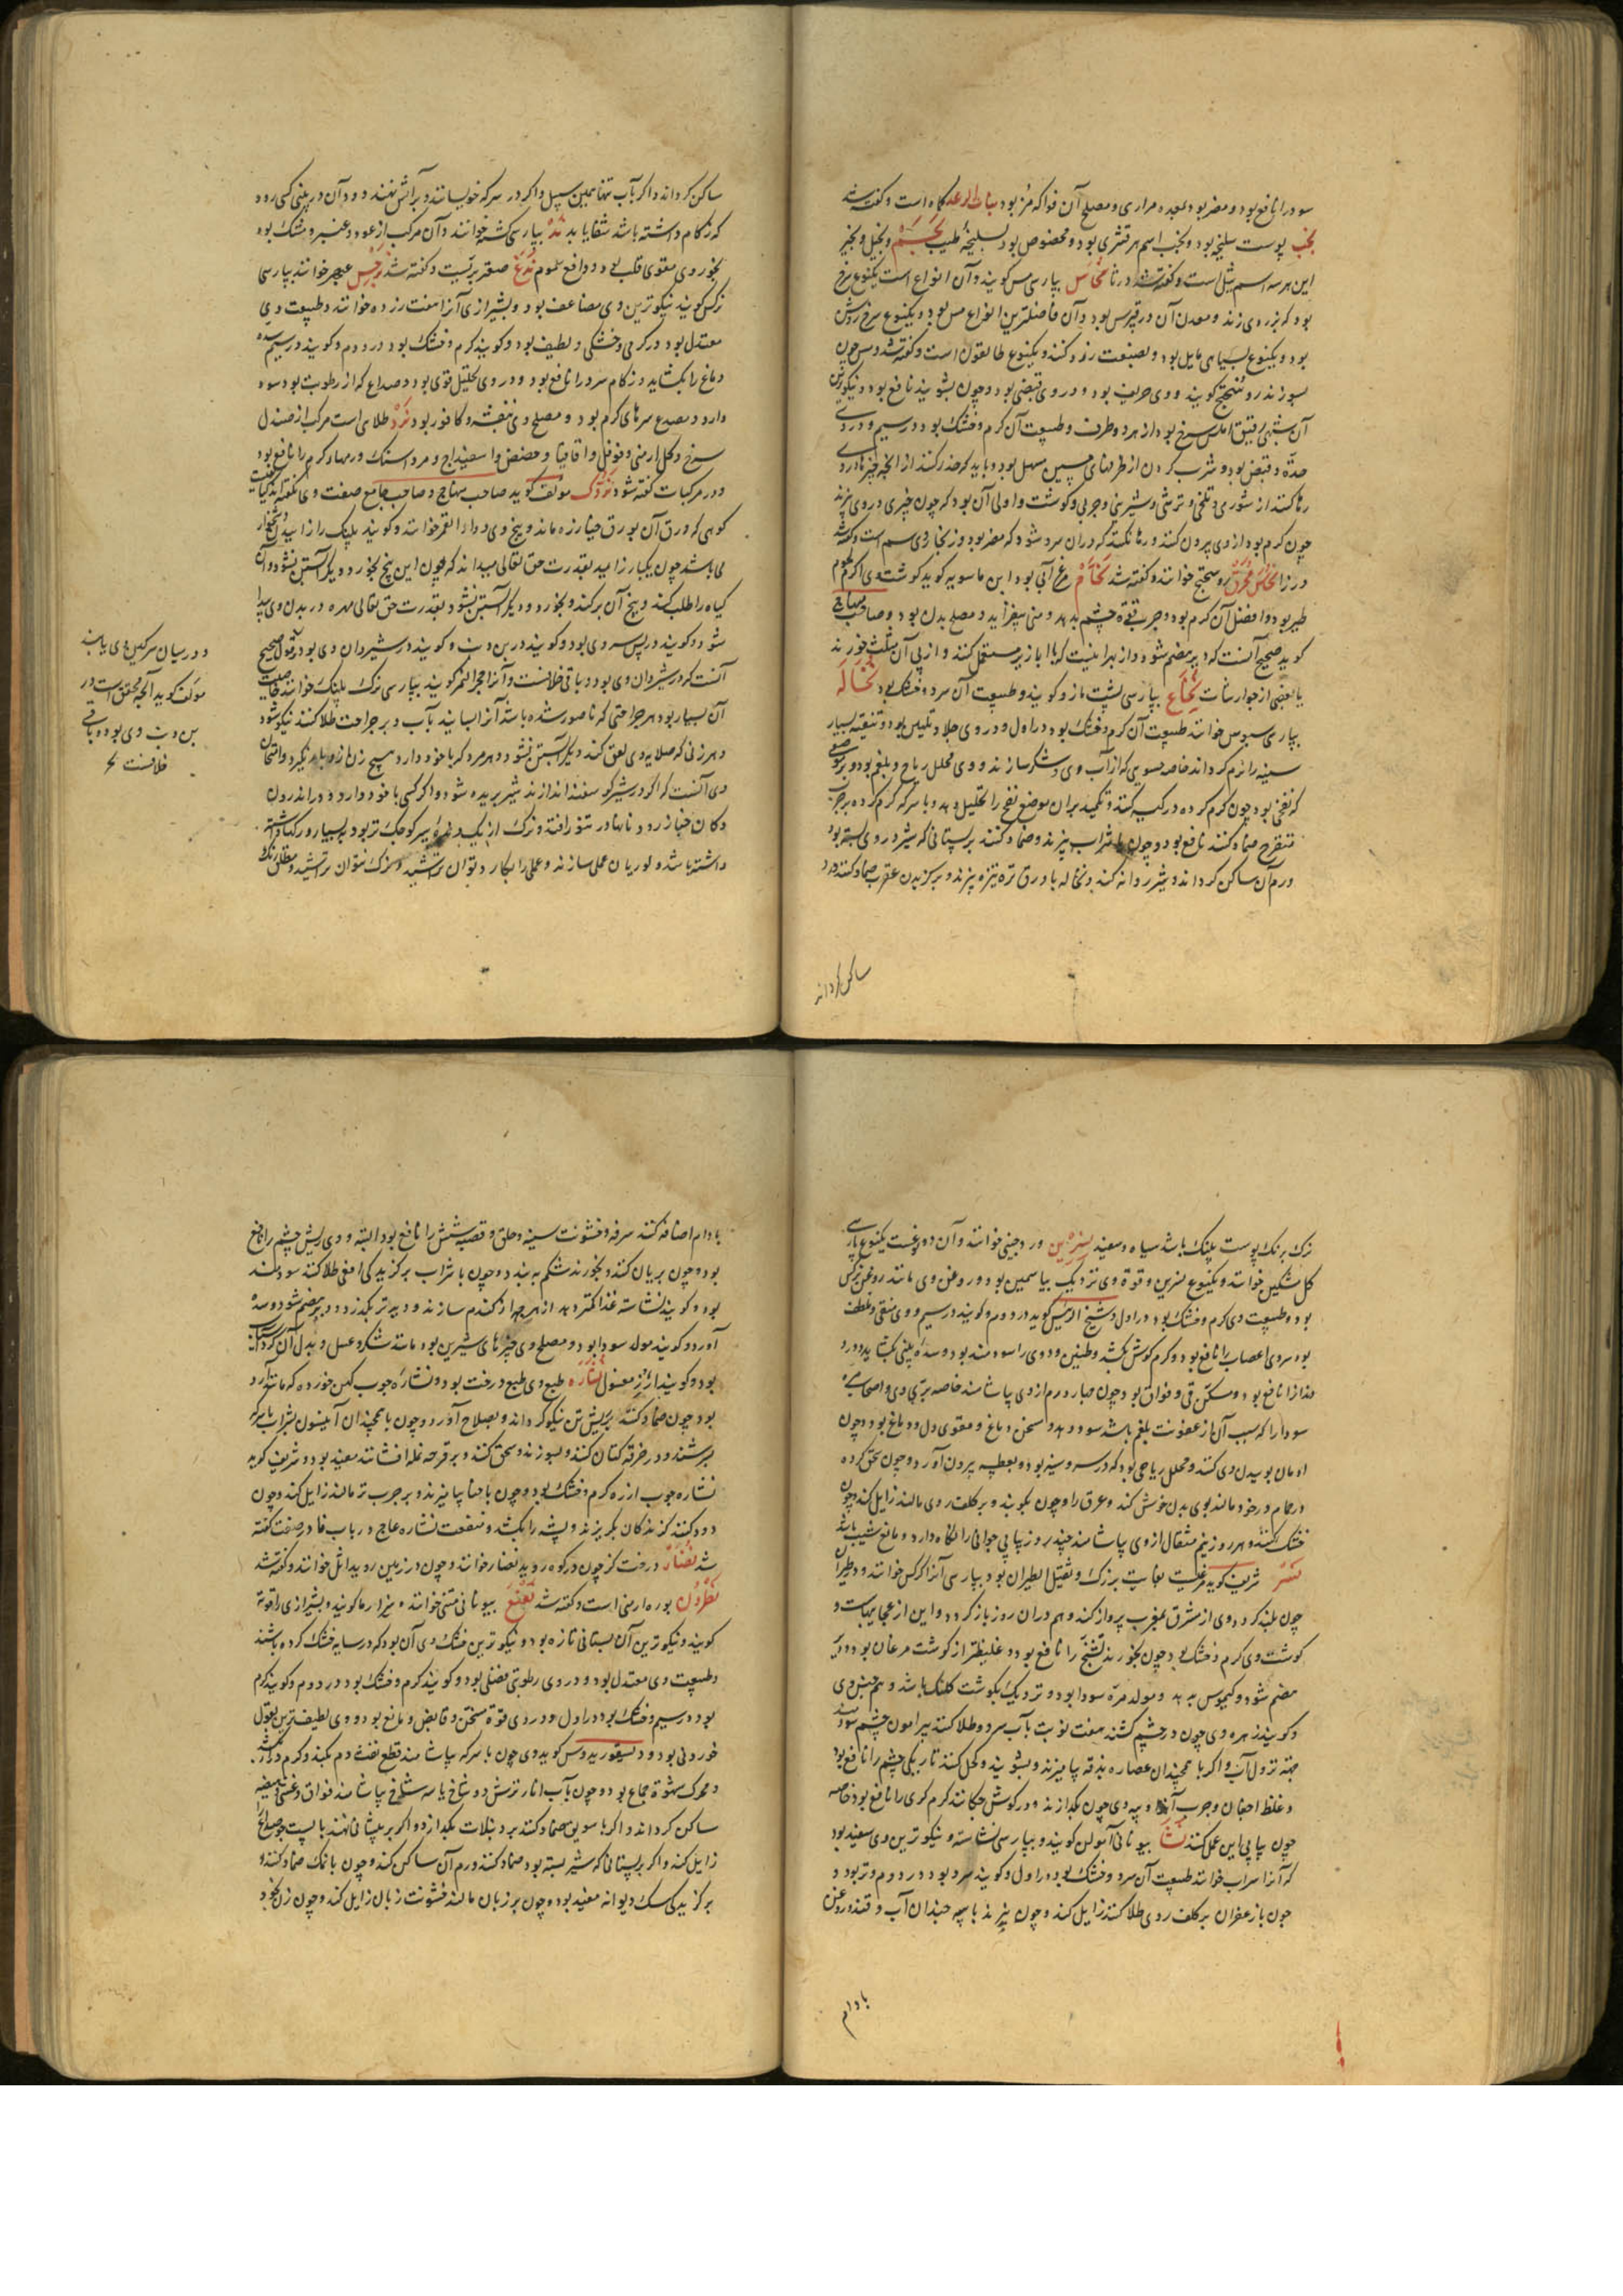 سودرا نافع بود و مضر بود بمعده مراری و مصلح آن فواکه مز بود نبات الرعد کاه است و گفته شد
نجب پوست سلیخه بود و نجب اسم هر قشری بود و مخصوص بود بسلیخه اطیب نجم و نجیل و نجیر
این هر سه اسم ثیل است و گفته شد در ثا نحاس بپارسی مس گویند و آن انواع است یکنوع سرخ
بود که بزردی زند و معدن آن در قبرس بود و آن فاضلترین انواع مس بود و یکنوع سرخ روشن
بود و یکنوع بسیاهی مایل بود و بصنعت زرد کنند و یکنوع طالیقون است و گفته شد و مس چون
بسوزند روسختج گویند و وی حریف بود و در وی قبضی بود و چون بشویند نافع بود و نیکوترین
آن سیم رقیق املس سرخ بود از هر دو طرف و طبیعت آن گرم و خشک بود در سیم و در وی
حدّة و قبض بود و شرب کردن از ظرفهای مسین مسهل بود و باید که حذر کنند از انچه چیزها در وی
رها کنند از شوری و تلخی و ترشی و شیرینی و چربی و گوشت و اولی آن بود که چون چیزی در وی پزند
چون گرم بود از وی بیرون کنند و رها نکنند که در ان سرد شود که مضر بود و زنجار وی سم است و گفته شد
در زا نحاس محرق روسختج خوانند و گفته شد نحام مرغ آبی بود ابن ماسویه گوید گوشت وی اکرم لحوم
طیر بود و افضل آن گرم بود و چرب قوة چشم بدهد و منی بیفزاید و مصلح بدن بود و صاحب منهاج
گوید صحیح آنست که دیر هضم شود و از بهر اینست که با ابازیر مستعمل کنند و از پی آن مثلث خورند
یا بعضی از جوارشات نخاع بپارسی پشت مازو گویند و طبیعت آن سرد و خشک بود نخاله
بپارسی سبوس خوانند طبیعت آن گرم و خشک بود در اول و در وی جلا و تلیین بود و تنقیه بسیار
سینه را نرم گرداند خاصه حسویی که از آب وی و شکر سازند و وی محلل ریاح و بلغم بود و بر موضعی
که نفخی بود چون گرم کرده در کیسه کنند و تکمید بر ان موضع نفخ را تحلیل دهد و با سرکه گرم کرده بر جرب
متقرح ضماد کنند نافع بود و چون با شراب بپزند و ضماد کنند بر پستانی که شیر در وی بسته بود
ورم آن ساکن گرداند و شیر روانه کند و نخاله با ورق ترب بپزند و بر گزیدن عقرب ضماد کنند درد
ساکن گرداند
ساکن گرداند و اگر بآب تنها همین سبیل و اگر در سرکه خویسانند و بر آتش نهند و دود آن در بینی کسی رود
که زکام داشته باشد شفا یابد ند بپارسی کشته خوانند و آن مرکب از عود و عنبر و مشک بود
بخور وی مقوی قلب بود و دافع سموم ندغ صعتر بریست و گفته شد نرجس عبهر خوانند بپارسی
نرگس گویند نیکوترین وی مضاعف بود و بشیرازی آنرا هفت رزده خوانند و طبیعت وی
معتدل بود در گرمی و خشکی و لطیف بود و گویند گرم و خشک بود در دوم و گویند در سیم سده
دماغ را بگشاید و زکام سرد را نافع بود و در وی تحلیل قوی بود و صداع که از رطوبت بود سود
دارد و مصدع سرهای گرم بود و مصلح وی بنفشه و کافور بود نرد طلای است مرکب از صندل
سرخ و گل ارمنی و فوفل و اقاقیا و حضض و اسفیداج و مرداسنک ورمهای گرم را نافع بود
و در مرکبات گفته شود نزدک مولف گوید صاحب منهاج و صاحب جامع صفت وی نگفته اند گیاهیست
کوهی که ورق آن بورق خیارزه ماند و بیخ وی دوادار القمر خوانند و گویند پلنک را زاییدن دشخوار
می باشد چون یکبار زایید بقدرت حق تعالی میداند که چون این بیخ بخورد دیگر آبستن نشود و آن
گیاه را طلب کند و بیخ آن بر کند و بخورد و دیگر آبستن نشود بقدرت حق تعالی مهره در بدن وی پیدا
شود و گویند در پس سر وی بود و گویند در بن دنب و گویند در شیردان وی بود و قول صحیح
آنست که در شیردان وی بود و باقی خلافست و آنرا حجر النمر گویند بپارسی نزک پلنک خوانند خاصیت
آن بسیار بود هر جراحتی که ناصور شده باشد آنرا بسایند بآب و بر جراحت طلا کنند نیکو شود
و هر زنی که صلایه وی لعق کند دیگر آبستن نشود و هر مرد که با خود دارد هیچ زن از او بار نگیرد و امتحان
وی آنست که اگر در شیر گوسفند اندازند شیر بریده شود و اگر کسی با خود دارد و در اندرون
دکان خباز رود نانها در تنور افتد و نزک از یک
داشته باشد و لوریان عملی سازند و عملی را بکارد بتوان تراشید و نزک نتوان تراشید و مطلق رنک
و در میان سرگین وی یابند
مولف گوید آنچه محقق است در
بن دنب وی بود و باقی
خلافست
نزک برنک پوست پلنک باشد سیاه و سفید نسرین ورد چینی خوانند و آن دو نوعست یکنوع بپارسی
گل مشکین خوانند و یکنوع نسرین و قوة وی نزدیک بیاسمین بود و روغن وی مانند روغن نرگس
بود و طبیعت وی گرم و خشک بود در اول و شیخ الرئیس گوید در دوم و گویند در سیم و وی منقی و ملطف
بود سردی اعصاب را نافع بود و گرم گوش بکشد و طنین و دوی را سودمند بود و سده بینی بگشاید و درد
دندانرا نافع بود و مسکن قی و فواق بود چون چهار درم از وی بیاشامند خاصه بری وی و اصحاب
سودا را که سبب آن از عفونت بلغم باشد سود دهد و مسخن دماغ و مقوی دل و دماغ بود و چون
ادمان بوییدن وی کنند و محلل ریاحی بود که در سر و سینه بود و بعطسه بیرون آورد و چون سحق کرده
در حمام در خود مالند بوی بدن خوش کند و عرق را و چون بکوبند و بر کلف روی مالند زایل کند و چون
خشک کنند و هر روز نیم مثقال از وی بیاشامند چند روز پیاپی جوانی را نگاه دارد و مانع شیب باشد
نسر شریف گوید مرغیست بغایت بزرک و ثقیل الطیران بود و بپارسی آنرا کرکس خوانند و در طیران
چون بلند گردد وی از مشرق بمغرب پرواز کند و هم در ان روز باز گردد و این از عجایبهاست و
گوشت وی گرم و خشک بود چون بخورند تشنج را نافع بود و غلیظتر از گوشت مرغان بود و دیر
هضم شود و کیموس بد بدهد و مولد مرّه سودا بود و نزدیک بگوشت کلنک باشد و هم جنس وی
و گویند زهره وی چون در چشم کشند هفت نوبت بآب سرد و طلا کنند پیرامون چشم سود دهد
جهته نزول آب و اگر با همچندان عصاره بذقه بیامیزند و بشویند و کحل کنند تاریکی چشم را نافع بود
و غلظ اجفان و جرب آنها و پیه وی چون بگدازند و در گوش چکانند گرم کری را نافع بود خاصه
چون پیاپی این عمل کنند نشا بیونانی آمولن گویند و بپارسی نشاسته و نیکوترین وی سفید بود
که آنرا سراب خوانند طبیعت آن سرد و خشک بود در اول و گویند سرد بود در دوم و تر بود و
چون با زعفران بر کلف روی طلا کنند زایل کند و چون بپزند با سه چندان آب و قند و روغن
بادام
بادام اضافه کنند سرفه و خشونت سینه و حلق و قصبه شش را نافع بود البته و وی ریش چشم را نافع
بود و چون بریان کنند و بخورند شکم ببندد و چون با شراب بر گزیدگی افعی طلا کنند سودمند
بود و گویند نشاسته غذا کمتر دهد از هرچه از گندم سازند و دیرتر بگذرد و دیر هضم شود و سده
آورد و گویند مولد سودا بود و مصلح وی چیزهای شیرین بود مانند شکر و عسل و بدل آن
بود و گویند ارز مغسول نشاره طبع وی طبع درخت بود و نشاره چوب کهن خورده که مانند آرد
بود چون ضماد کنند بر ریش تن نیکو گرداند و بصلاح آورد و چون با همچندان آنیسون بشراب یا سرکه
بسرشند و در خرقه کتان کنند و بسوزند و سحق کنند و بر قرحه نمله افشانند مفید بود و شریف گوید
نشاره چوب ارزه گرم و خشک بود و چون با حنا بیامیزند و بر جرب تر مالند زایل کند و چون
دود کنند گزندگان بگریزند و پشه را بکشد و منفعت نشاره عاج در باب فا در صفت گفته
شد نضار درخت گز چون در کوه روید نضار خوانند و چون در زمین روید اثل خوانند و گفته شد
نطرون بوره ارمنی است و گفته شد نعنع بیونانی منتی خوانند و بشیرازی راقوته
گویند و نیکوترین آن بستانی تازه بود و نیکوترین خشک وی آن بود که در سایه خشک کرده باشند
و طبیعت وی معتدل بود و در وی رطوبتی فضلی بود و گویند گرم و خشک بود در دوم و گویند گرم
بود در سیم و خشک بود در اول و در وی قوة مسخن و قابض و مانع بود و وی لطیف ترین بقول
خوردنی بود و دیسقوریدوس گوید وی چون با سرکه بیاشامند قطع نفث دم بکند و گرم دراز بکشد
و محرک شهوة جماع بود و چون بآب انار ترش دو شاخ یا سه شاخ بیاشامند فواق و غثی و هیضه
ساکن گرداند و اگر با سویق ضماد کنند بر دبیلات بگدازد و اگر بر پیشانی نهند با پست جو صداع
زایل کند و اگر بر پستانی که شیر بسته بود ضماد کنند ورم آن ساکن کند و چون با نمک ضماد کنند و
بر گزیدگی سک دیوانه مفید بود و چون بر زبان مالند خشونت زبان زایل کند و چون زن بخود